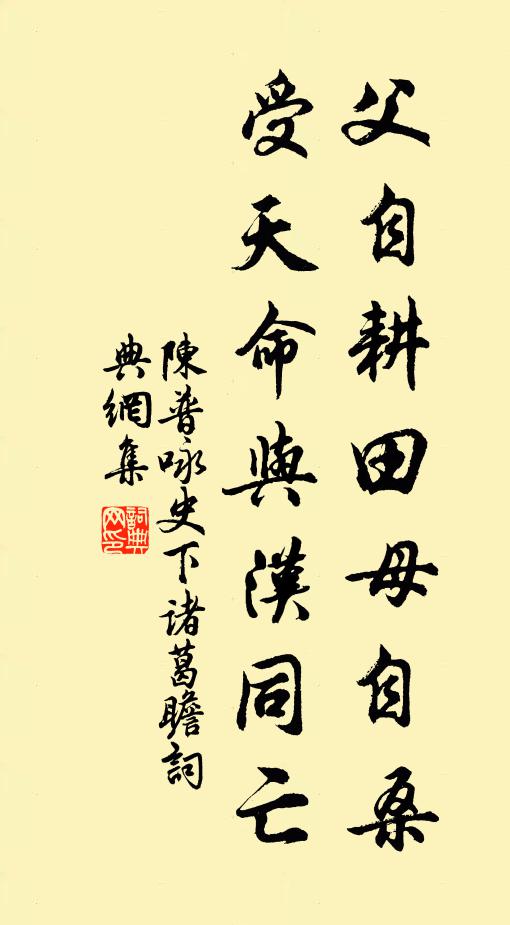 父自耕田母自桑
受天命與漢同亡
陳普咏史下诸葛瞻詞
典網集
詞典
网印